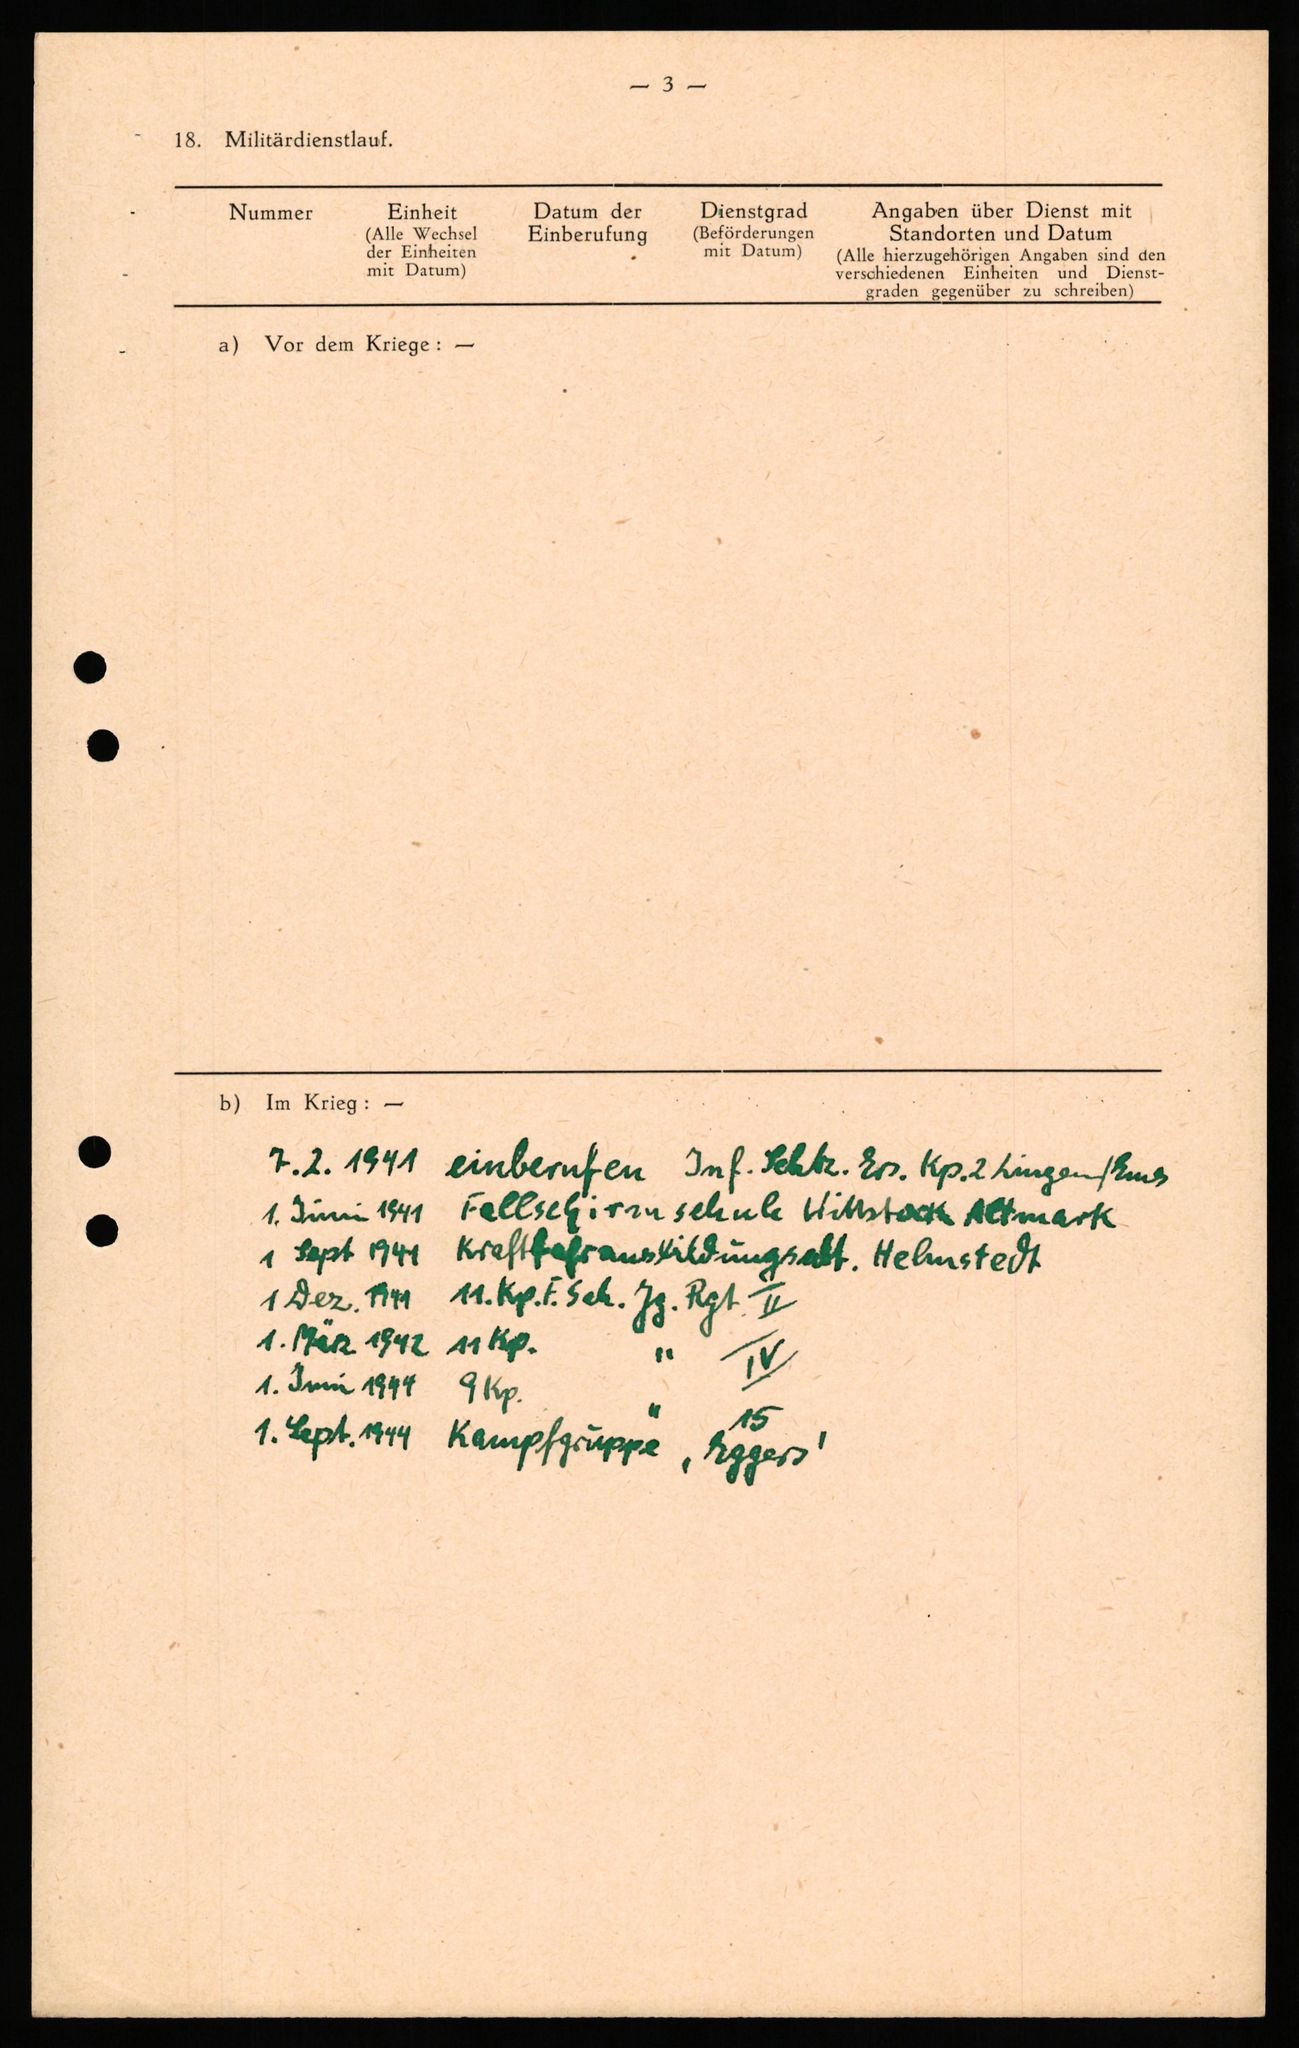 — 3 —
18. Militärdienstlauf.
Nummer
Einheit
(Alle Wechsel
der Einheiten
mit Datum)
Datum der
Einberufung
Dienstgrad
(Beförderungen
mit Datum)
Angaben über Dienst mit
Standorten und Datum
(Alle hierzugehörigen Angaben sind den
verschiedenen Einheiten und Dienst-
graden gegenüber zu schreiben)
a) Vor dem Kriege : —
b) Im Krieg : —
7.2. 1941 einberufen Inf. Schtz. Ers. Kp. 2 Lingen/Ems
1. Juni 1941 Fallschirmschule Wittstock Altmark
1 Sept 1941 Kraftfahrausbildungsabt. Helmstedt
1 Dez. 1941 11. Kp. F. Sch. Jg. Rgt II
1. März 1942 11 Kp. " IV
1. Juni 1944 9 Kp. " 15
1. Sept. 1944 Kampfgruppe 'Eggers'